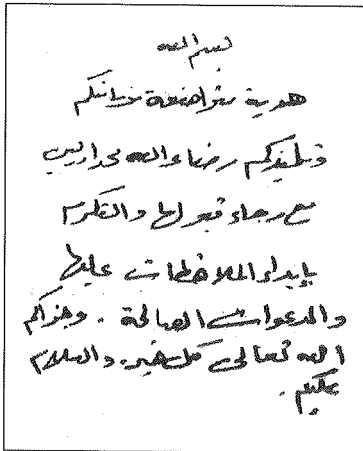 بسم الله
هدية متواضعة من ابنكم
وتلميذكم رضاء الله
مع رجاء قبولها والتكرم
بإبداء الملاحظات عليها
والدعوات الصالحة . وجزاكم
الله تعالى كل خير . والسلام
عليكم .